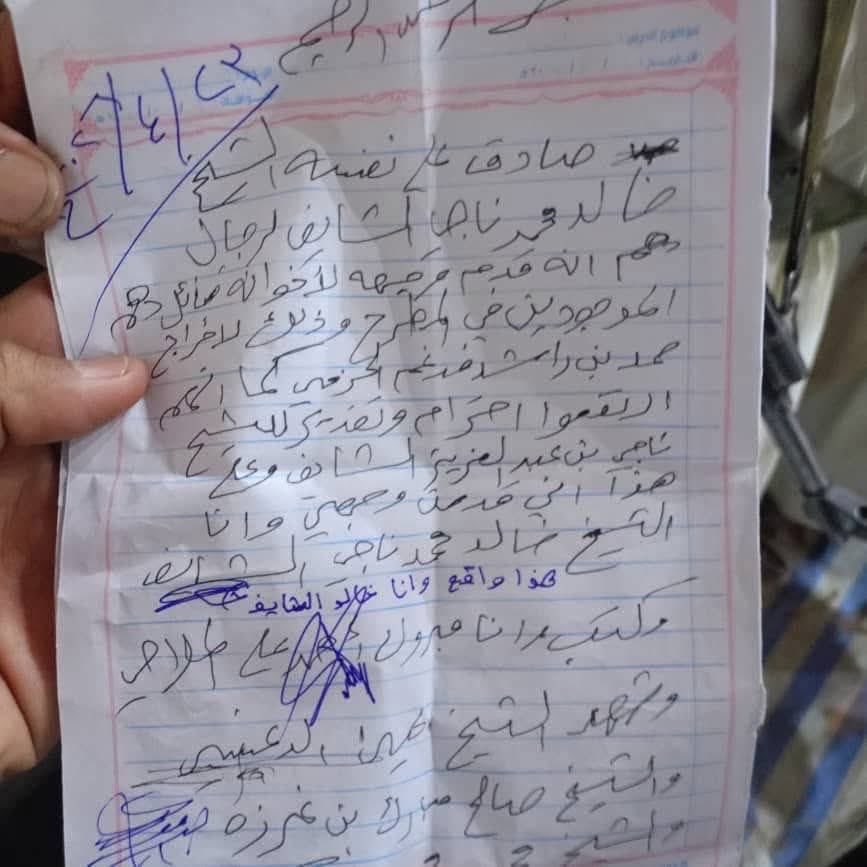 بسم الله الرحمن الرحيم
صادق على نفسه الشيخ
خالد محمد ناجي الشايف لرجال
دهم انه قدم وجيهه لاخوانه قبائل دهم
الموجودين في المطرح وذلك لاخراج
حمد بن راشد فدغم الحزمي كما انهم
احترام وتقدير للشيخ
ناجي بن عبدالعزيز الشايف وعلى
هذا اني قدمت وجهي وانا
الشيخ خالد محمد ناجي الشايف
هذا واقع وانا خالد الشايف
وكتب وانا مبروك علي
وشهد الشيخ يحيى
والشيخ صالح مبارك بن غرزه
والشيخ